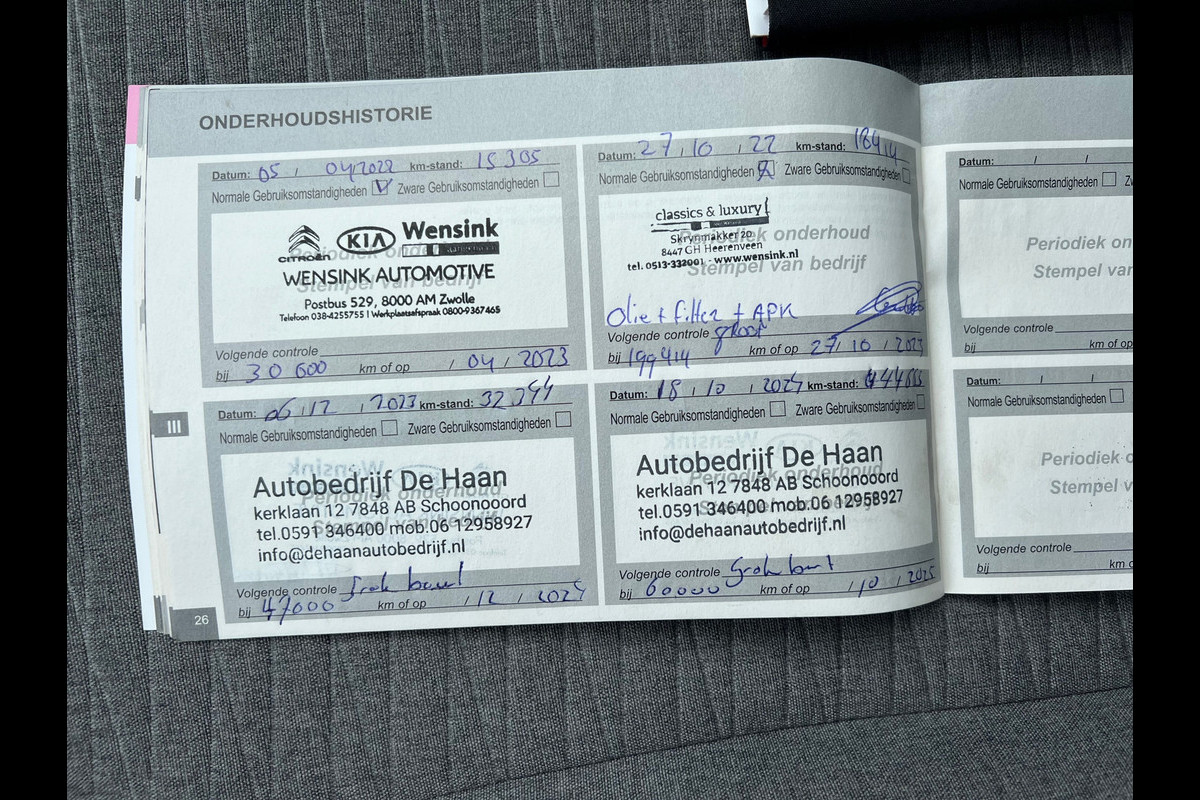 ONDERHOUDSHISTORIE
Datum: 05 / 04/2022 km-stand: 15 305
Normale Gebruiksomstandigheden V Zware Gebruiksomstandigheden
CITROËN KIA Wensink
Periodiek onderhoud
WENSINK AUTOMOTIVE
Stempel van bedrijf
Postbus 529, 8000 AM Zwolle
Telefoon 038-4255755 | Werkplaatsafspraak 0800-9367465
Volgende controle
bij 30 600 km of op / 04 / 2023
Datum: 27 / 10 / 22 km-stand: 18414
Normale Gebruiksomstandigheden X Zware Gebruiksomstandigheden
classics & luxury
Skrynmakker 20
Periodiek onderhoud
8447 GH Heerenveen
tel. 0513-332001 - www.wensink.nl
Stempel van bedrijf
Olie + filter + APK
Volgende controle groot
bij 199414 km of op 27 / 10 / 2023
Datum: 06 / 12 / 2023 km-stand: 32
Normale Gebruiksomstandigheden Zware Gebruiksomstandigheden
Autobedrijf De Haan
Periodiek onderhoud
kerklaan 12 7848 AB Schoonoord
tel.0591 346400 mob.06 12958927
Stempel van bedrijf
info@dehaanautobedrijf.nl
Volgende controle
bij 47000 km of op / 12 / 2024
Datum: 18 / 10 / 2024 km-stand:
Normale Gebruiksomstandigheden Zware Gebruiksomstandigheden
Autobedrijf De Haan
Periodiek onderhoud
kerklaan 12 7848 AB Schoonoord
tel.0591 346400 mob.06 12958927
info@dehaanautobedrijf.nl
Volgende controle
bij 60000 km of op / 10 / 2025
III
26
Datum: / /
Normale Gebruiksomstandigheden
Periodiek on
Stempel var
Volgende controle
bij km of op
Datum: / /
Normale Gebruiksomstandigheden
Periodiek o
Stempel v
Volgende controle
bij km o